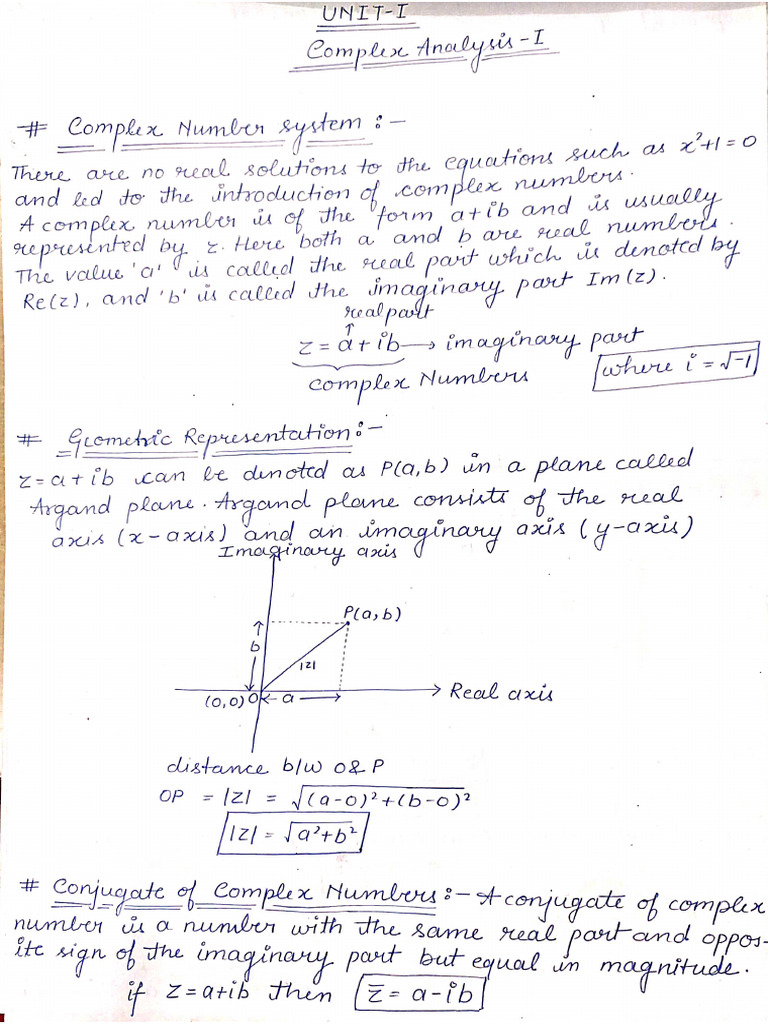 UNIT-I
Complex Analysis-I
# Complex Number system:-
There are no real solutions to the equations such as x²+1=0
and led to the introduction of complex numbers.
A complex number is of the form a+ib and is usually
represented by z. Here both a and b are real numbers.
The value 'a' is called the real part which is denoted by
Re(z), and 'b' is called the imaginary part Im(z).
real part
↑
z = a + ib → imaginary part
complex Numbers
where i = √-1
# Geometric Representation:-
z = a + ib can be denoted as P(a,b) in a plane called
Argand plane. Argand plane consists of the real
axis (x-axis) and an imaginary axis (y-axis)
Imaginary axis
P(a,b)
b
|z|
(0,0) O ← a → Real axis
distance b/w O & P
OP = |z| = √(a-0)²+(b-0)²
|z| = √a²+b²
# Conjugate of Complex Numbers:- A conjugate of complex
number is a number with the same real part and oppos-
ite sign of the imaginary part but equal in magnitude.
if z = a+ib then z̄ = a-ib